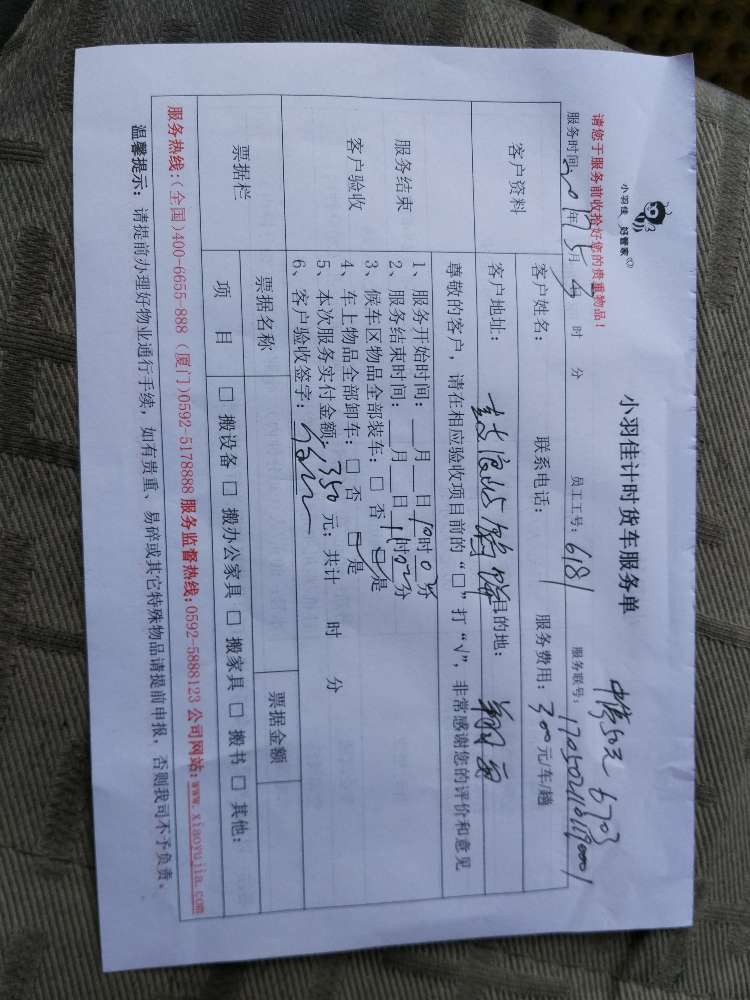 小羽佳 好管家
小羽佳计时货车服务单
6703
请您于服务前收拾好您的贵重物品!
服务时间: 2017年 5月 4 时 分 员工工号: 6181 服务联号:
客户资料
客户姓名: 联系电话: 服务费用: 300元/车/趟
客户地址: 目的地:
尊敬的客户,请在相应验收项目前的“□”打“√”,非常感谢您的评价和意见
服务结束
客户验收
1、服务开始时间: 月 日 10时 0分
2、服务结束时间: 月 日 11时 02分
3、候车区物品全部装车: □ 否 □ 是
4、车上物品全部卸车: □ 否 □ 是
5、本次服务实付金额: 350 元; 共计 时 分
6、客户验收签字:
票据栏
票据名称 票据金额
项 目 □ 搬设备 □ 搬办公家具 □ 搬家具 □ 搬书 □ 其他:
服务热线:(全国)400-6655-888 (厦门)0592-5178888 服务监督热线:0592-5888123 公司网站:www.xiaoyujia.com
温馨提示: 请提前办理好物业通行手续,如有贵重、易碎或其它特殊物品请提前申报,否则我司不予负责。